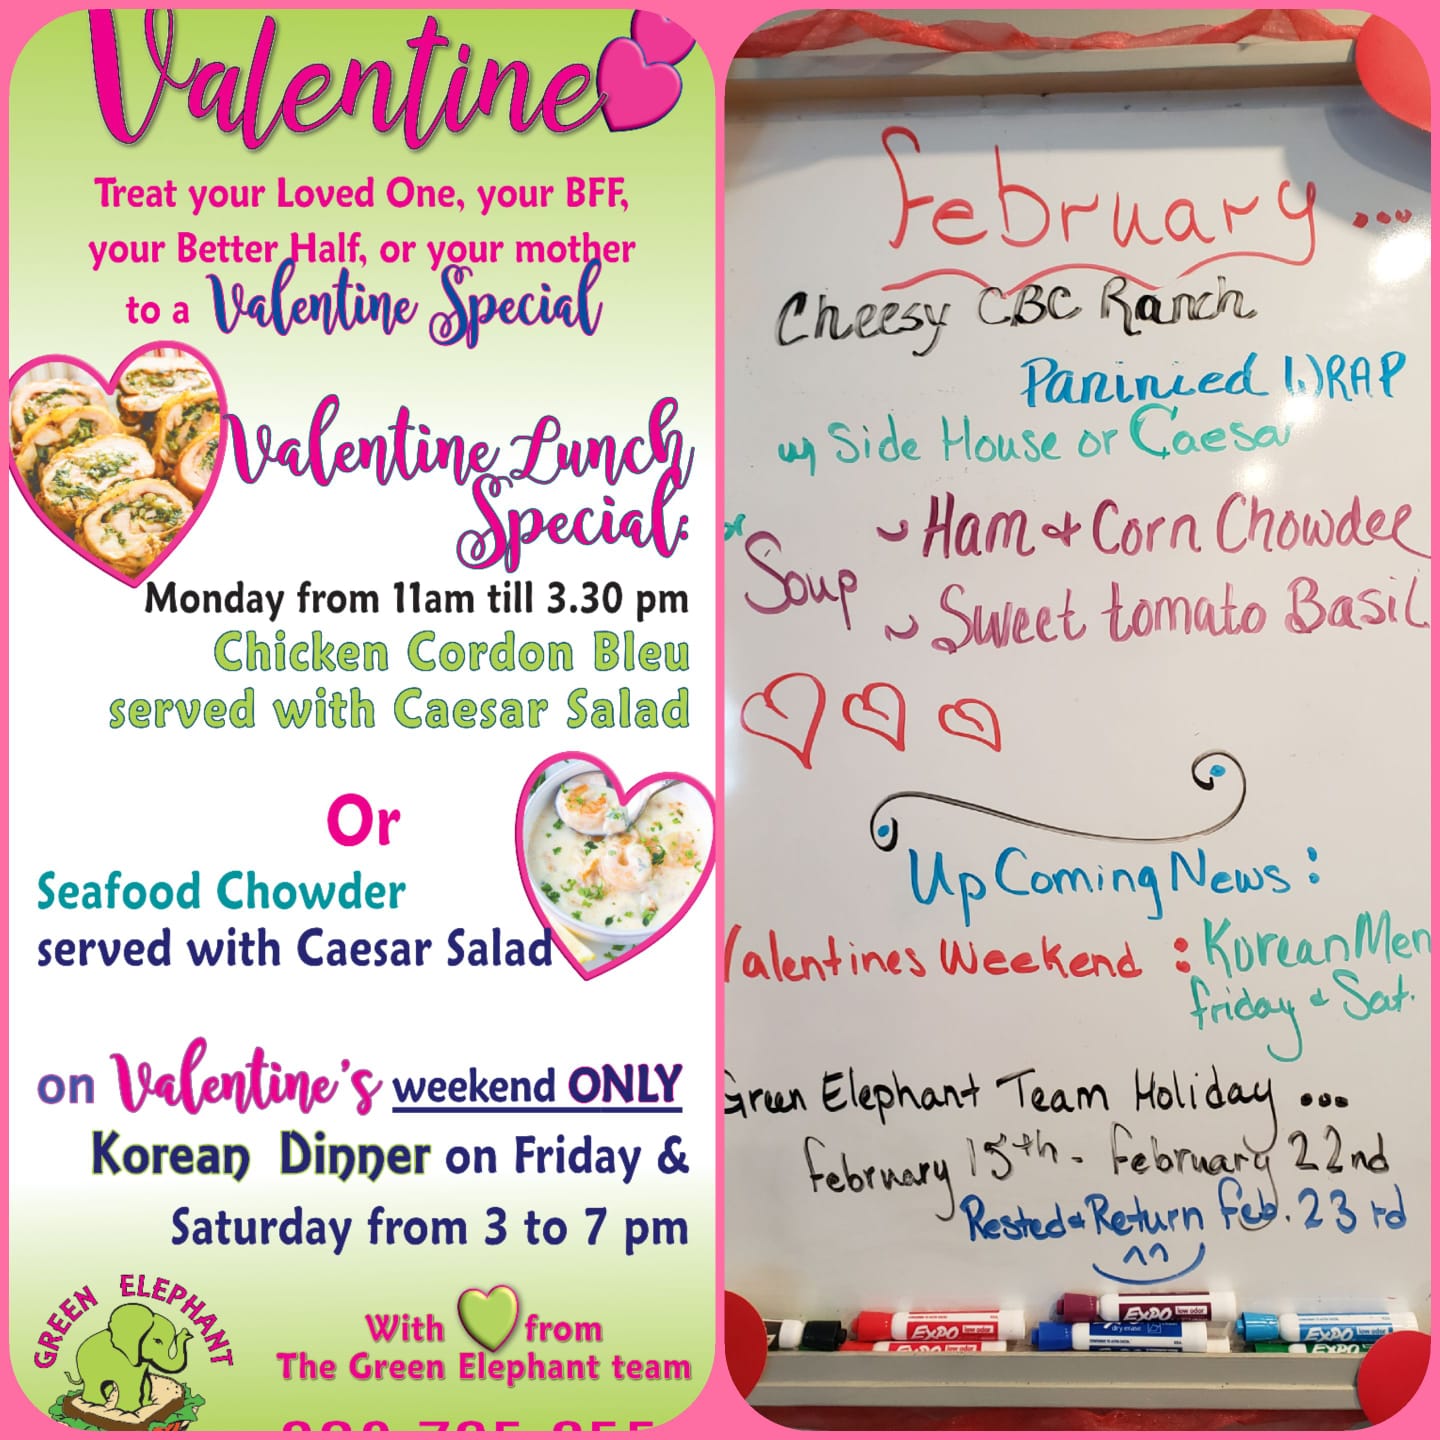 Valentine
Treat your Loved One, your BFF,
your Better Half, or your mother
to a Valentine Special
Valentine Lunch
Special:
Monday from 11am till 3.30 pm
Chicken Cordon Bleu
served with Caesar Salad
Or
Seafood Chowder
served with Caesar Salad
on Valentine's weekend ONLY
Korean Dinner on Friday &
Saturday from 3 to 7 pm
GREEN ELEPHANT
With from
The Green Elephant team
February ...
Cheesy CBC Ranch
Paninied WRAP
w/ Side House or Caesar
or
Soup ~ Ham & Corn Chowder
~ Sweet tomato Basil
Up Coming News :
Valentines Weekend : Korean Men
friday & Sat.
Green Elephant Team Holiday ...
february 15th - february 22nd
Rested & Return feb. 23rd
EXPO low odor
EXPO low odor
EXPO low odor
dry erase
EXPO low odor
EXPO